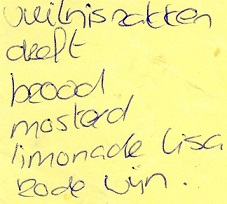 vuilniszakken
dreft
brood
mosterd
limonade lisa
rode wijn.